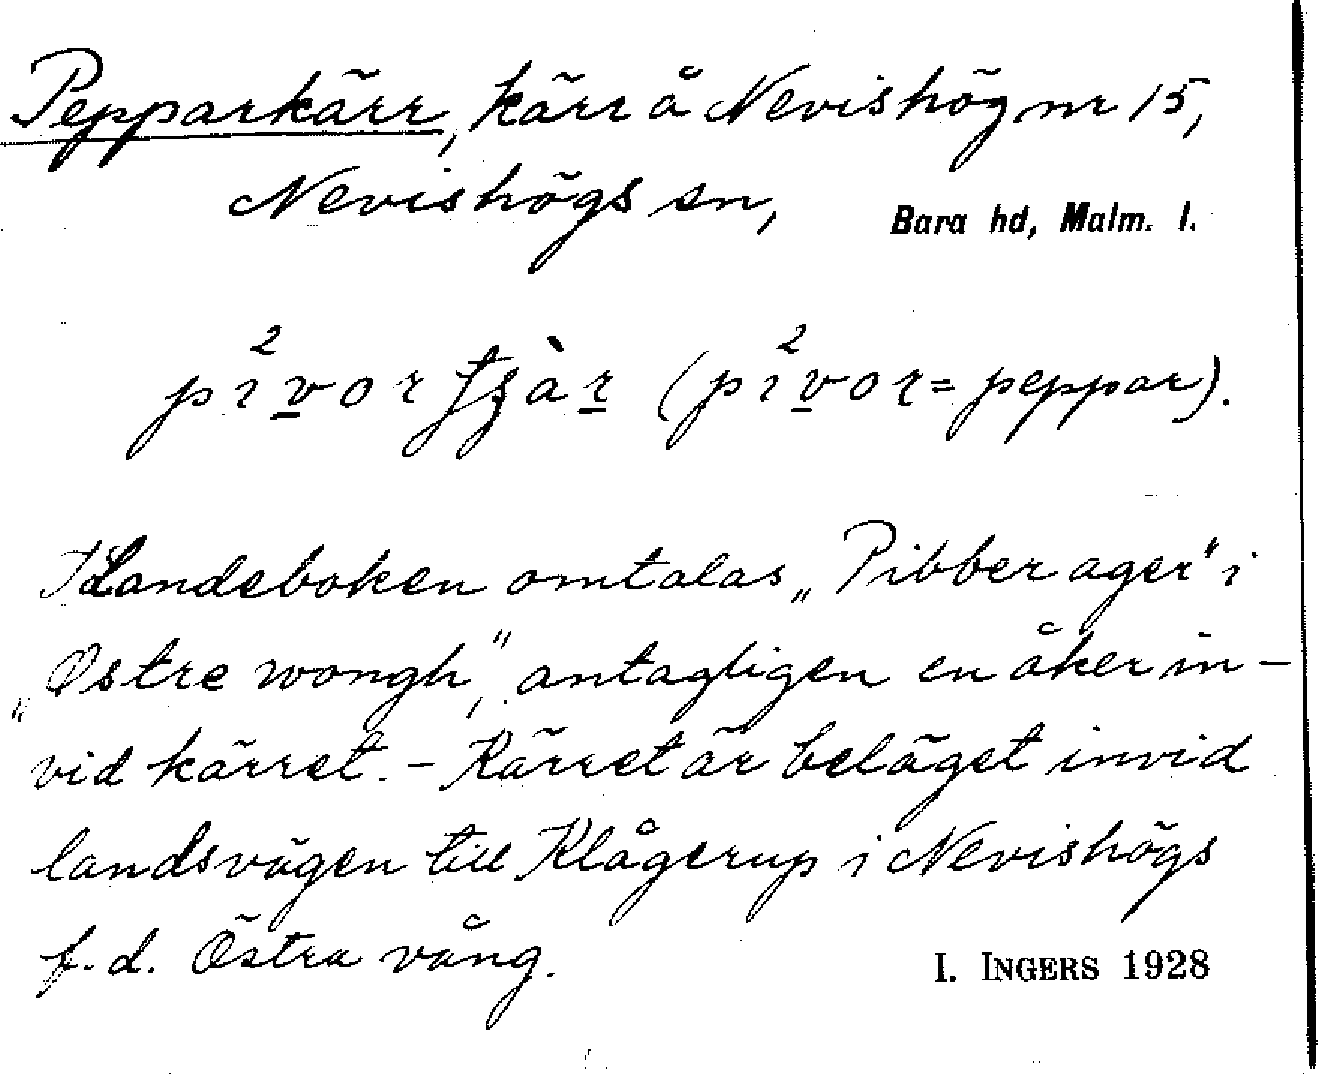 Pepparkärr, kärr å Nevishög nr 15,
Nevishögs sn, Bara hd, Malm. l.
pi²vorʈʂàr (pi²vor = peppar).
I Landeboken omtalas „Pibber ager" i
„Østre wongh", antagligen en åker in-
vid kärret. - Kärret är beläget invid
landsvägen till Klågerup i Nevishögs
f.d. Östra vång.
I. INGERS 1928